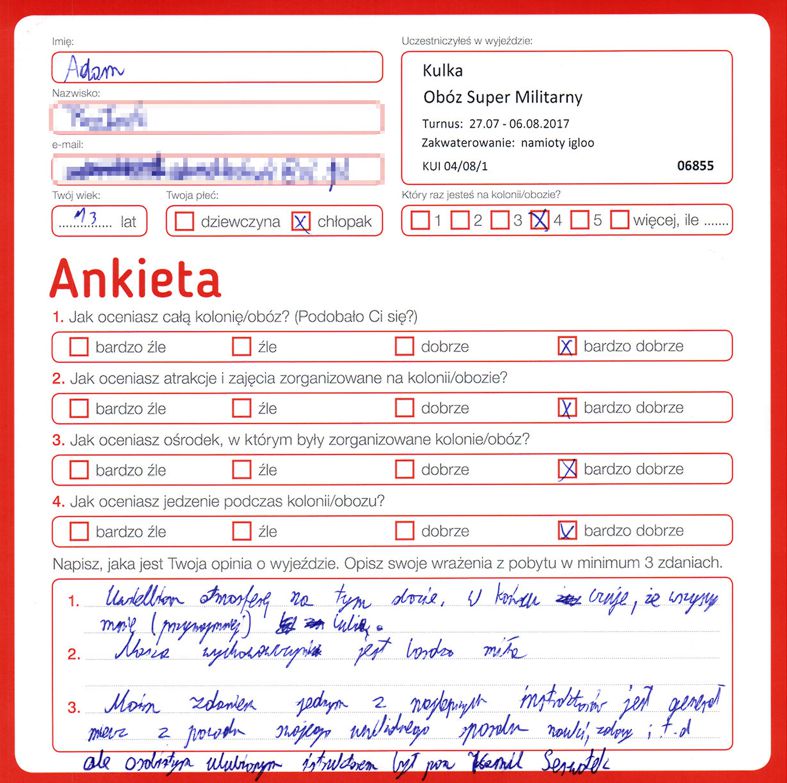 Imię:
Adam
Uczestniczyłeś w wyjeździe:
Kulka
Obóz Super Militarny
Turnus: 27.07 - 06.08.2017
Zakwaterowanie: namioty igloo
KUI 04/08/1 06855
Nazwisko:
e-mail:
Twój wiek:
13 lat
Twoja płeć:
dziewczyna X chłopak
Który raz jesteś na kolonii/obozie?
1 2 3 X 4 5 więcej, ile .......
Ankieta
1. Jak oceniasz całą kolonię/obóz? (Podobało Ci się?)
bardzo źle źle dobrze X bardzo dobrze
2. Jak oceniasz atrakcje i zajęcia zorganizowane na kolonii/obozie?
bardzo źle źle dobrze X bardzo dobrze
3. Jak oceniasz ośrodek, w którym były zorganizowane kolonie/obóz?
bardzo źle źle dobrze X bardzo dobrze
4. Jak oceniasz jedzenie podczas kolonii/obozu?
bardzo źle źle dobrze bardzo dobrze
Napisz, jaka jest Twoja opinia o wyjeździe. Opisz swoje wrażenia z pobytu w minimum 3 zdaniach.
1. Uwielbiam atmosferę na tym obozie. W końcu czuje, że wszyscy
mnie (przynajmniej) lubią.
2. Nasza wychowawczyni jest bardzo miła
3. Moim zdaniem jednym z najlepszych instruktorów jest generał
z powodu swojego sposobu nauki, zabawy i t.d
ale osobistym ulubionym był pan Kamil